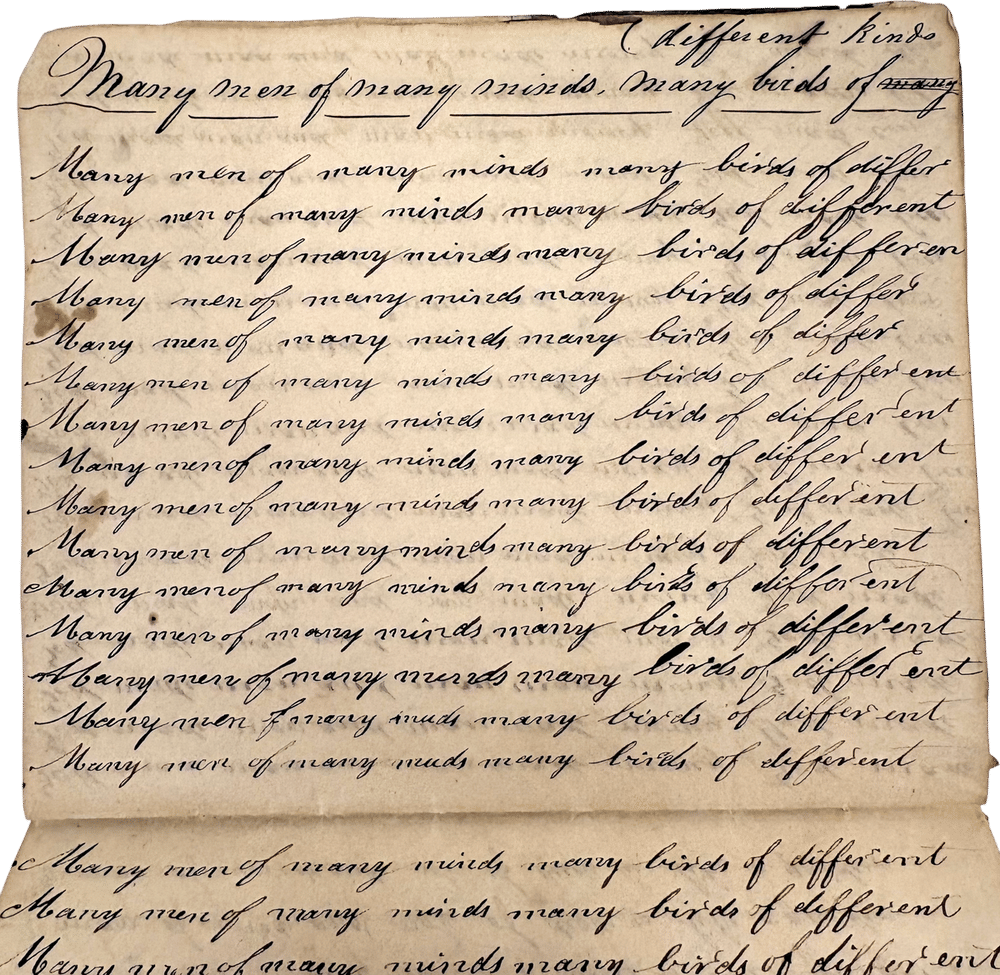 ( different kinds
Many men of many minds, many birds of many
Many men of many minds many birds of differ
Many men of many minds many birds of different
Many men of many minds many birds of differen
Many men of many minds many birds of differ
Many men of many minds many birds of differ
Many men of many minds many birds of different
Many men of many minds many birds of different
Many men of many minds many birds of different
Many men of many minds many birds of different
Many men of many minds many birds of different
Many men of many minds many birds of different
Many men of many minds many birds of different
Many men of many minds many birds of different
Many men f many muds many birds of different
Many men of many muds many birds of different
Many men of many minds many birds of different
Many men of many minds many birds of different
Many men of many minds many birds of different